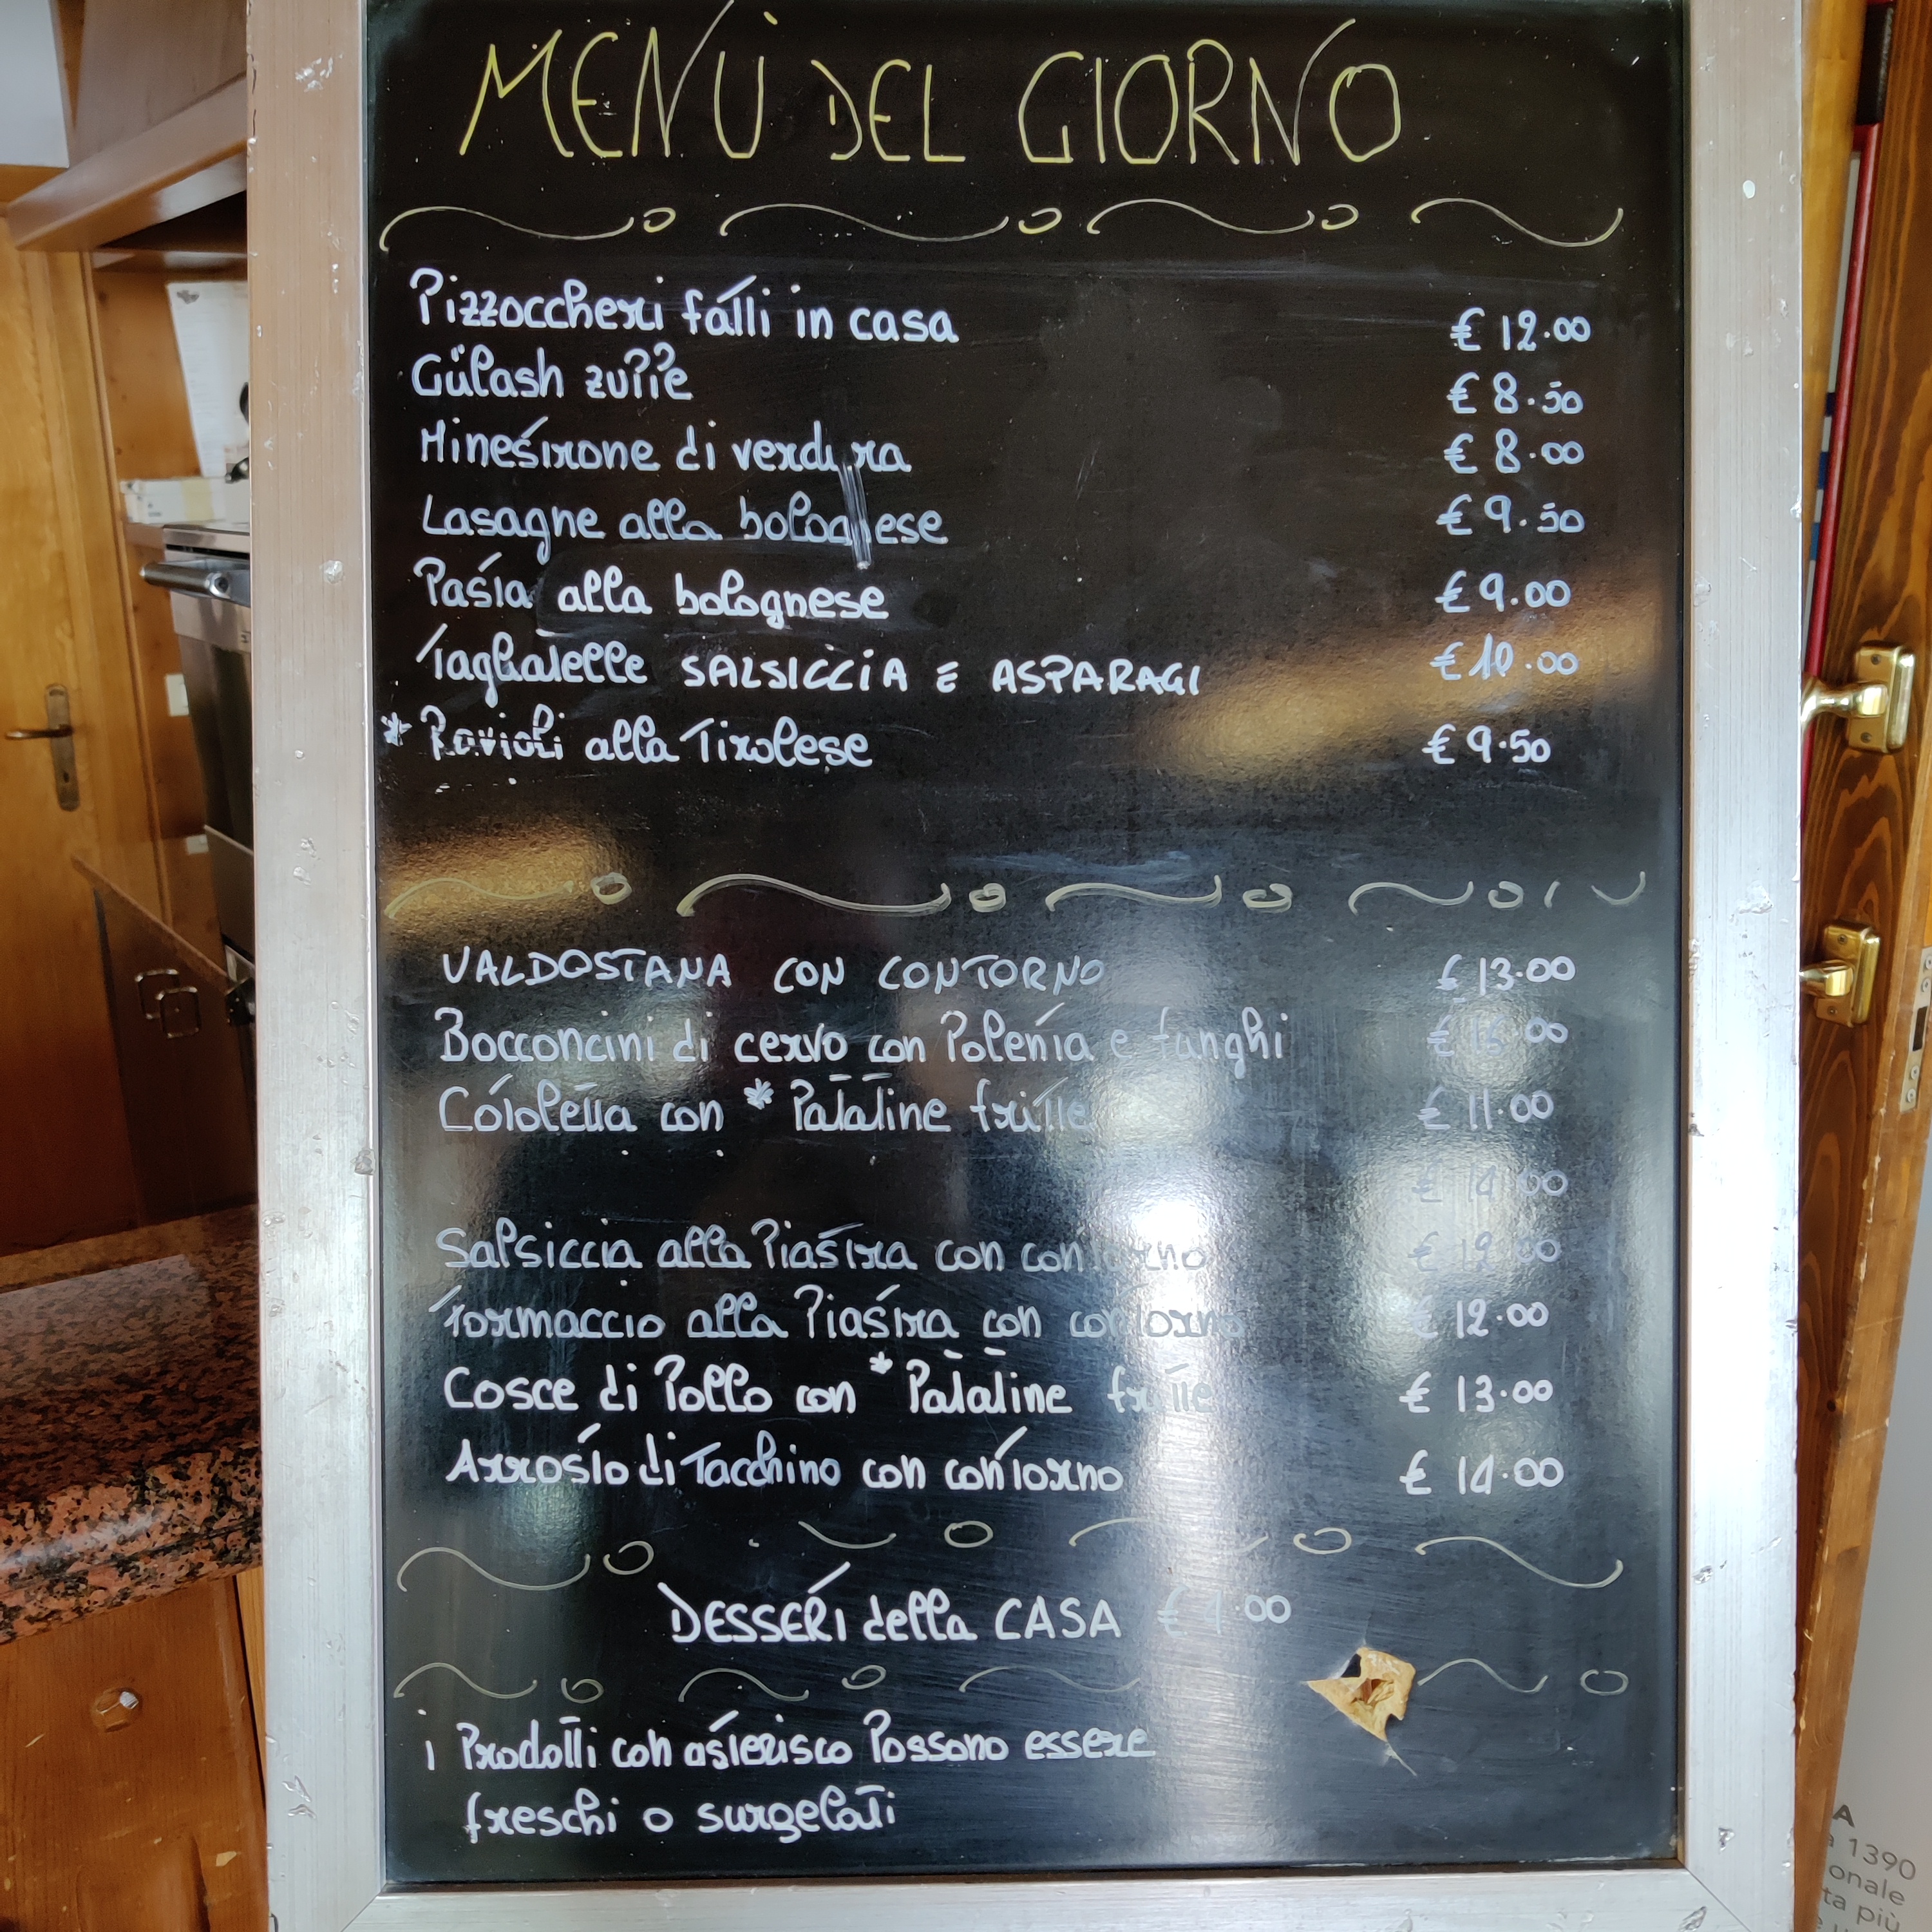 MENÙ DEL GIORNO
Pizzoccheri fatti in casa € 12.00
Gülash zuppe € 8.50
Minestrone di verdura € 8.00
Lasagne alla bolognese € 9.50
Pasta alla bolognese € 9.00
Tagliatelle SALSICCIA E ASPARAGI € 10.00
* Ravioli alla Tirolese € 9.50
VALDOSTANA CON CONTORNO € 13.00
Bocconcini di cervo con Polenta e funghi
Cotoletta con * Patatine fritte € 11.00
Salsiccia alla Piastra con contorno € 12.00
formaggio alla Piastra con contorno € 12.00
Cosce di Pollo con * Patatine fritte € 13.00
Arrosto di Tacchino con contorno € 14.00
DESSERT della CASA
i Prodotti con asterisco Possono essere
freschi o surgelati
A
1390
onale
ta più